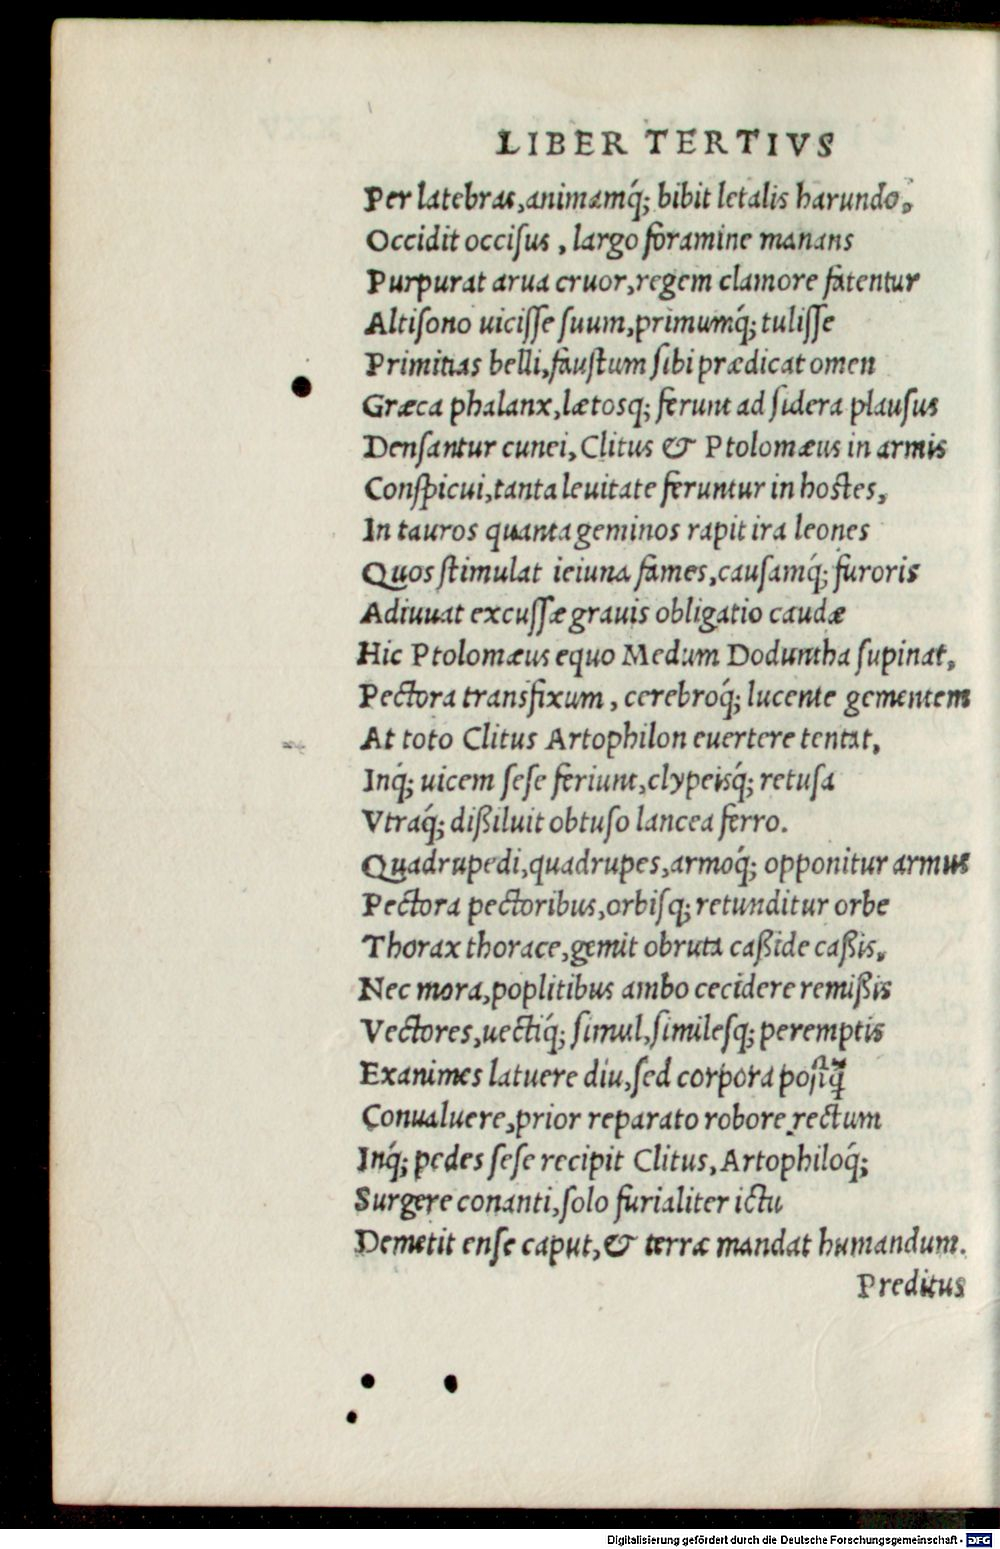 LIBER TERTIVS
Per latebras,animamq́; bibit letalis harundo,
Occidit occiſus , largo foramine manans
Purpurat arua cruor,regem clamore fatentur
Altiſono uiciſſe ſuum,primumq́; tuliſſe
Primitias belli,fauſtum ſibi prædicat omen
Græca phalanx,lætosq; ferunt ad ſidera plauſus
Denſantur cunei, Clitus & Ptolomæus in armis
Conſpicui,tanta leuitate feruntur in hoſtes,
In tauros quanta geminos rapit ira leones
Quos ſtimulat ieiuna fames,cauſamq́; furoris
Adiuuat excuſſæ grauis obligatio caudæ
Hic Ptolomæus equo Medum Doduntha ſupinat,
Pectora transfixum , cerebroq́; lucente gementem
At toto Clitus Artophilon euertere tentat,
Inq́; uicem ſeſe feriunt,clypeisq́; retuſa
Vtraq́; dißiluit obtuſo lancea ferro.
Quadrupedi,quadrupes,armoq́; opponitur armus
Pectora pectoribus,orbiſq; retunditur orbe
Thorax thorace,gemit obruta caßide caßis,
Nec mora,poplitibus ambo cecidere remißis
Vectores,uectiq́; ſimul,ſimilesq; peremptis
Exanimes latuere diu,ſed corpora poſtq̃
Conualuere,prior reparato robore rectum
Inq́; pedes ſeſe recipit Clitus, Artophiloq́;
Surgere conanti,ſolo furialiter ictu
Demetit enſe caput,& terræ mandat humandum.
Preditus
Digitalisierung gefördert durch die Deutsche Forschungsgemeinschaft - DFG